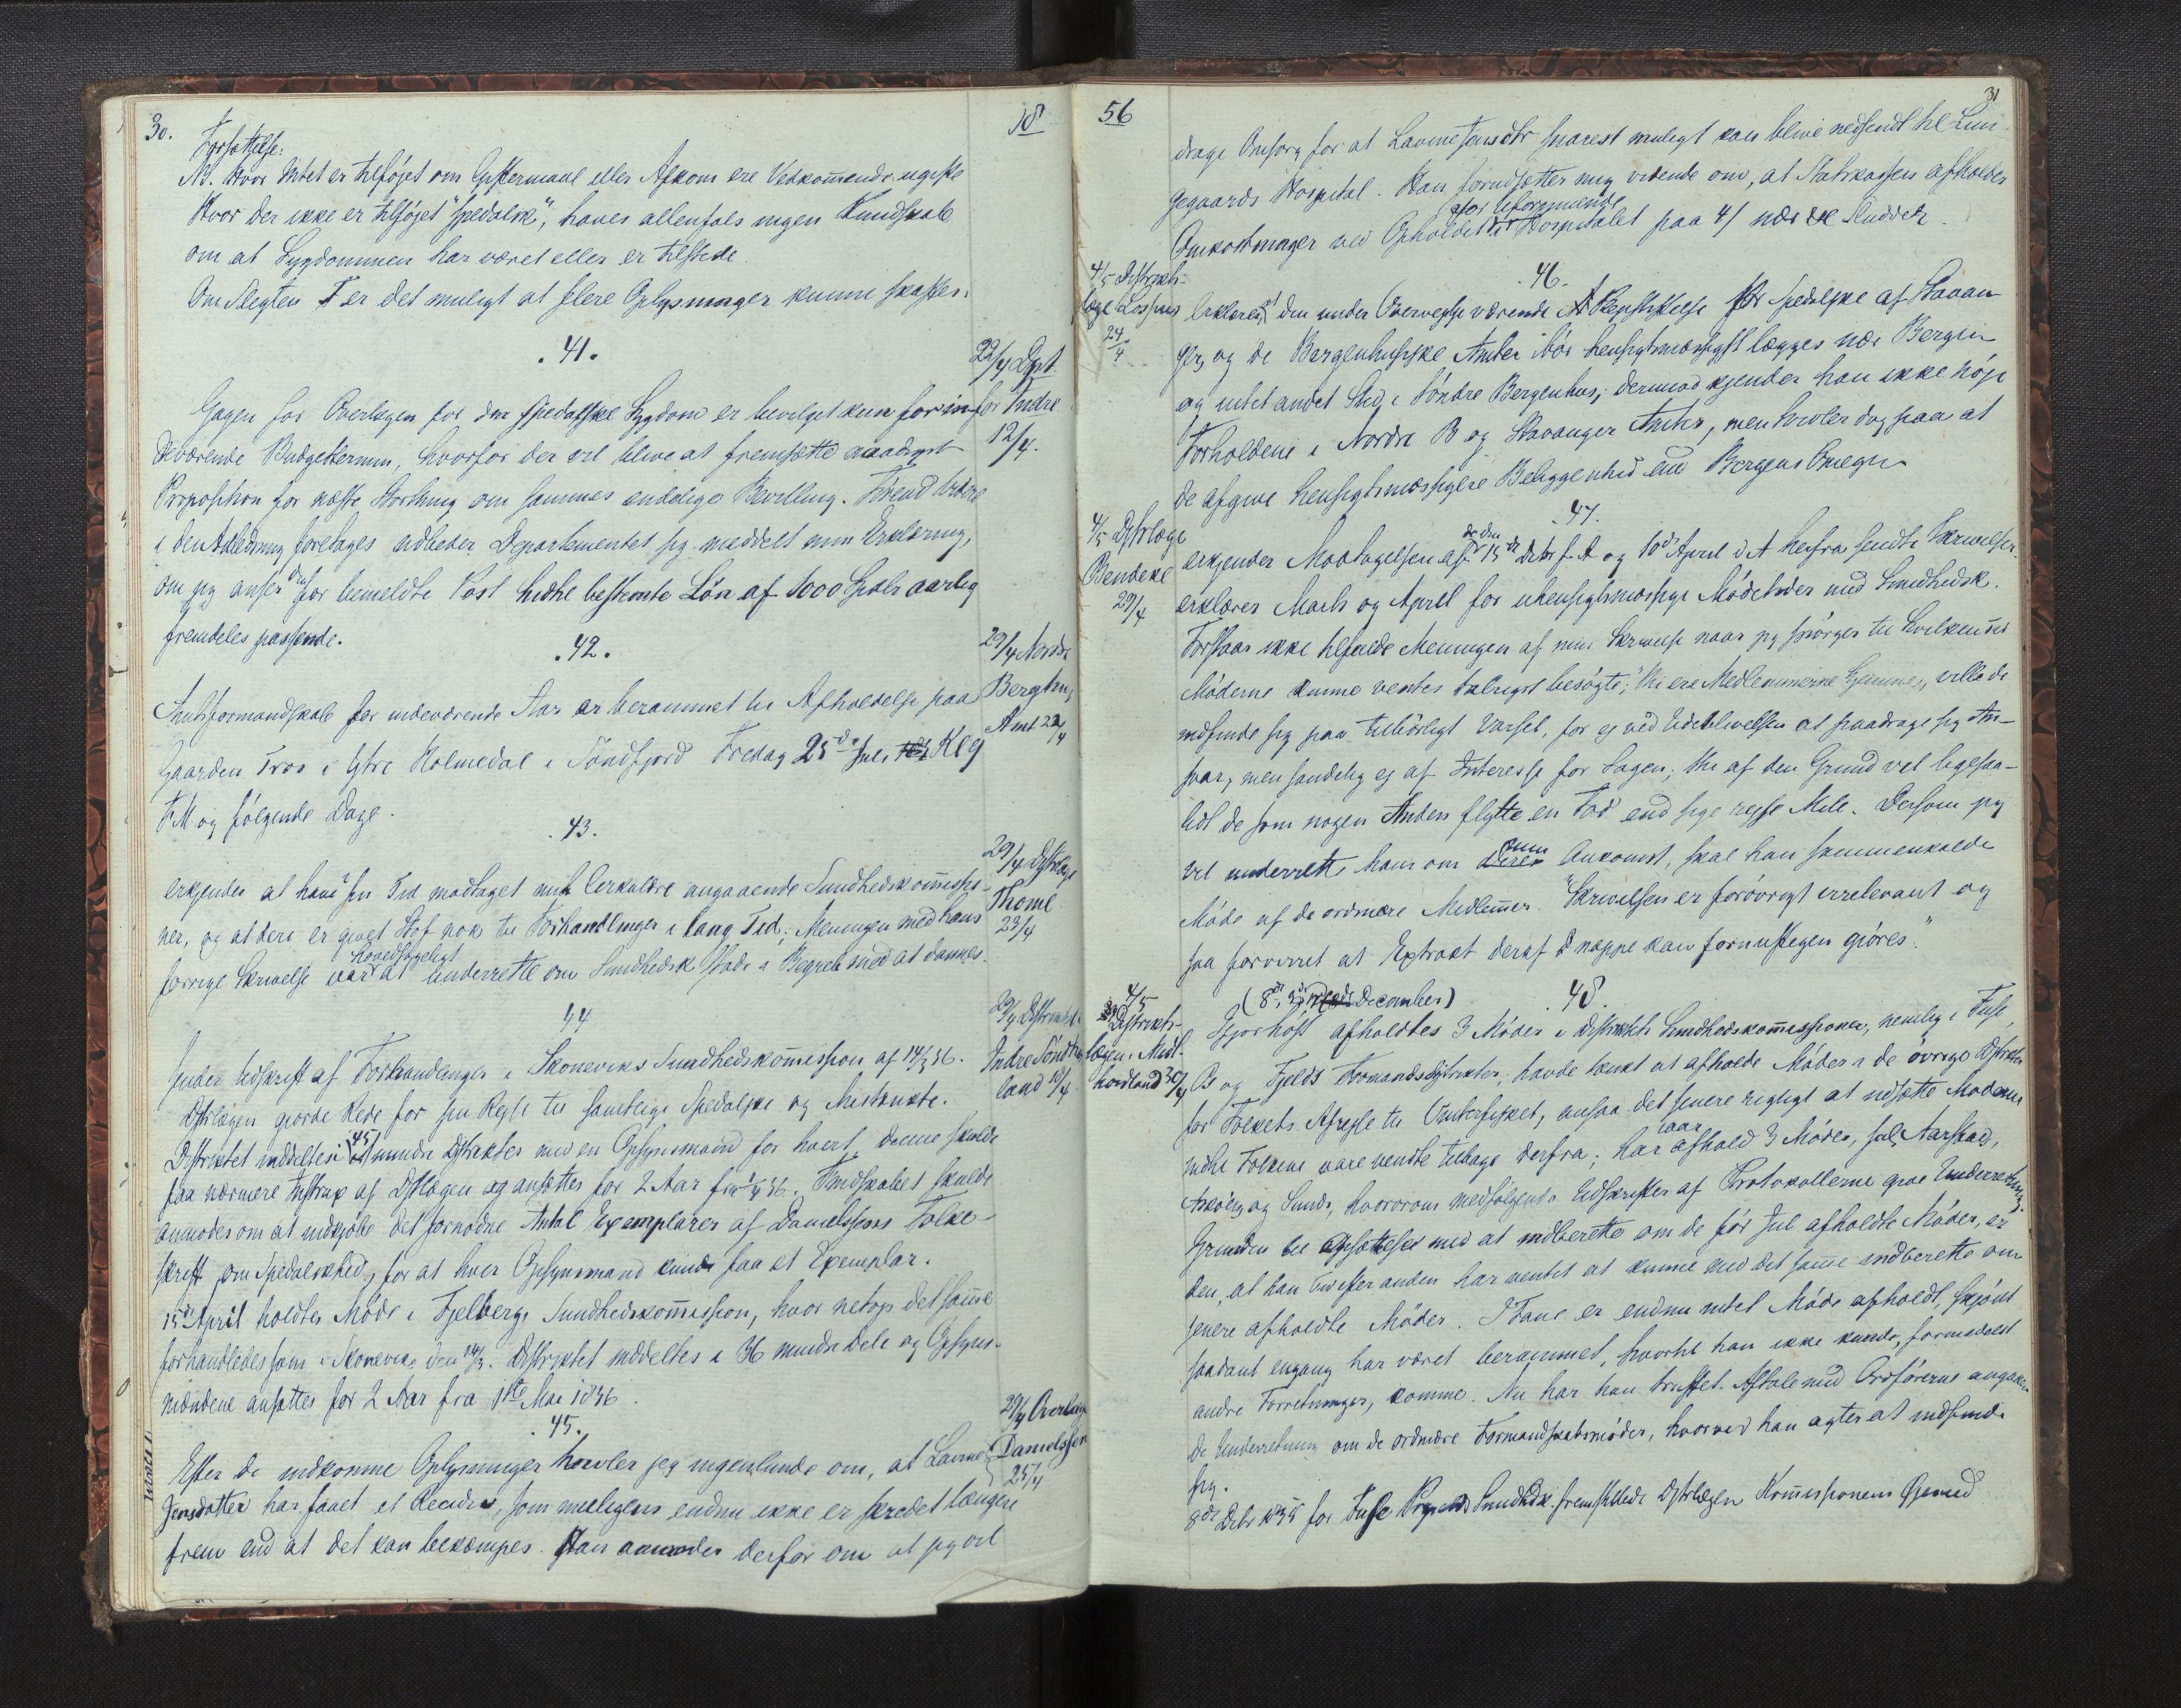 30.
18
Forsættelse:
NB. Hvor Intet er tilføjet om Giftermaal eller Afkom ere Vedkommende ugifte
Hvor der ikke er tilføjet "spedalsk", haves allenfals ingen Kundskab
om at Sygdommen har været eller er tilstede.
Om Slegten er det muligt at flere Oplysninger kunne skaffes.
.41.
22/4 Dept.
for Indre
12/4.
Gagen for Overlægen for den spedalske Sygdom er bevilget kun for in-
deværende Budgettermin, hvorfor der vil blive at fremsætte naadigst
Proposition for næste Storthing om sammes endelige Bevilling. Forend videre
i den Anledning foretages udbeder Departementet sig meddelt min Erklæring,
om jeg anser den for bemeldte Post hidtil bestemte Løn af 1000 Spdlr aarlig
fremdeles passende.
.42.
29/4 Nordre
Bergenhus
Amt 22/4
Amtsformandskab for indeværende Aar er berammet til Afholdelse paa
Gaarden Tros i Ytre Holmedal i Søndfjord Fredag 25de Juli Kl 9
FM og følgende Dage.
.43.
29/4 Distrlæge
Thome
23/4
erkjender at have i sin Tid modtaget mit Cirkulære angaaende Sundhedskommissio-
ner, og at deri er givet Stof nok til Forhandlinger i lang Tid; Meningen med hans
forrige Skrivelse var hovedsageligt at underrette om Sundhedsk stode i Begreb med at dannes.
44
29/4 Distrikts
Indre Søndhord
land 18/4
sender Udskrift af Forhandlinger i Skonevigs Sundhedskommission af 14/3 56.
Distrlægen gjorde Rede for sin Rejse til samtlige Spedalske og Mistænkte.
Distriktet inddeltes i 45 mindre Distrikter med en Opsynsmand for hvert, denne skulde
faa nærmere Instrux af Dstlægen og ansættes for 2 Aar fra 1/4 56. Fmdskabet skulde
anmodes om at indkjøbe det fornødne Antal Exemplarer af Danielssens Folke-
skrift om Spedalskhed, for at hver Opsynsmand kunde faa et Exemplar.
15de April holdtes Møde i Fjelbergs Sundhedskommission, hvor netop det samme
forhandledes som i Skonevig den 14/3. Distriktet inddeltes i 36 mindre Dele og Opsyns-
mændene ansattes for 2 Aar fra 1ste Mai 1856.
.45.
29/4 Overlæge
Danielssen
25/4
Efter de indkomne Oplysninger tvivler jeg ingenlunde om, at Lavine
Jensdatter har faaet et Recidiv, som muligens endnu ikke er skredet længere
frem end at det kan bekæmpes. Han anmoder derfor om at jeg vil
56
31
drage Omsorg for at Lavine Jensdtr snarest muligt kan blive nedsendt til Lun-
gegaards Hospital. Han forudsætter mig vidende om, at Statskassen afholder
Omkostninger ved Opholdet i Hospitalet for uformuende paa 4/ nær
.46.
4/5 Distrikts-
læge Lossius
24/4
erklærer, at den under Overvejelse værende Plejestiftelse for Spedalske af Stavan-
ger, og de Bergenhusiske Amter bør hensigtsmæssigst lægges nær Bergen
og intet andet Sted i Søndre Bergenhus; derimod kjender han ikke nøje
Forholdene i Nordre B og Stavanger Amter, men tvivler dog paa at
de afgive hensigtsmæssigere Beliggenhed end Bergens Omegn.
.47.
4/5 Distrlæge
Bendeke
29/4
erkjender Modtagelsen af de den 15de Dcbr f. A og 10de April d A herfra sendte Skrivelser.
erklærer Marts og April for uhensigtsmæssige Mødetider med Sundhedsk.
Forstaar ikke tilfulde Meningen af min Skrivelse naar jeg spørger til hvilken Tid
Møderne kunne ventes talrigst besøgte; "thi ere Medlemmerne hjemme, ville de
indfinde sig paa tilbørligt Varsel, for ej ved Udeblivelsen at paadrage sig An-
svar, men sandelig ej af Interesse for Sagen; thi af den Grund vil ligesaa-
lidt de som nogen Anden flytte en Fod end sige rejse Mile. Dersom jeg
vil underrette ham om min Ankomst, skal han sammenkalde
Møde af de ordinære Medlemmer. "Skrivelsen er forøvrigt irrelevant og
saa forvirret at Extrakt deraf næppe kan fornuftigen gjøres".
.48.
4/5
Distrikts-
lægen i Midt-
hordland 30/4
(8de, December)
Ifjor høst afholdtes 3 Møder i Distriktets Sundhedskommissioner, nemlig i Fuse,
Os og Fjelds Formandsdistrikter; havde tænkt at afholde Møder i de øvrige Distrikter
før Folkets Afrejse til Vinterfisket, ansaa det senere rigtigt at udsætte Møderne
indtil Folkene vare vendte tilbage derfra; har iaar afholdt 3 Møder, Aarstad,
Askøen og Sund, hvorom medfølgende Udskrifter af Protokollerne give Underretning.
Grunden til Opsættelsen med at indberette om de før Jul afholdte Møder, er
den, at han Tid efter anden har ventet at kunne med det samme indberette om
senere afholdte Møder. I Fane er endnu intet Møde afholdt, skjønt
saadant engang har været berammet, hvortil han ikke kunde, formedelst
andre Forretninger, komme. Nu har han truffet Aftale med Ordførerne angaaen-
de Underretning om de ordinære Formandskabsmøder, hvorved han agter at indfinde
sig.
8de Dcbr 1855 for Fuse Sundhdsk. fremstillede Distrlægen Kommissionens Øjemed